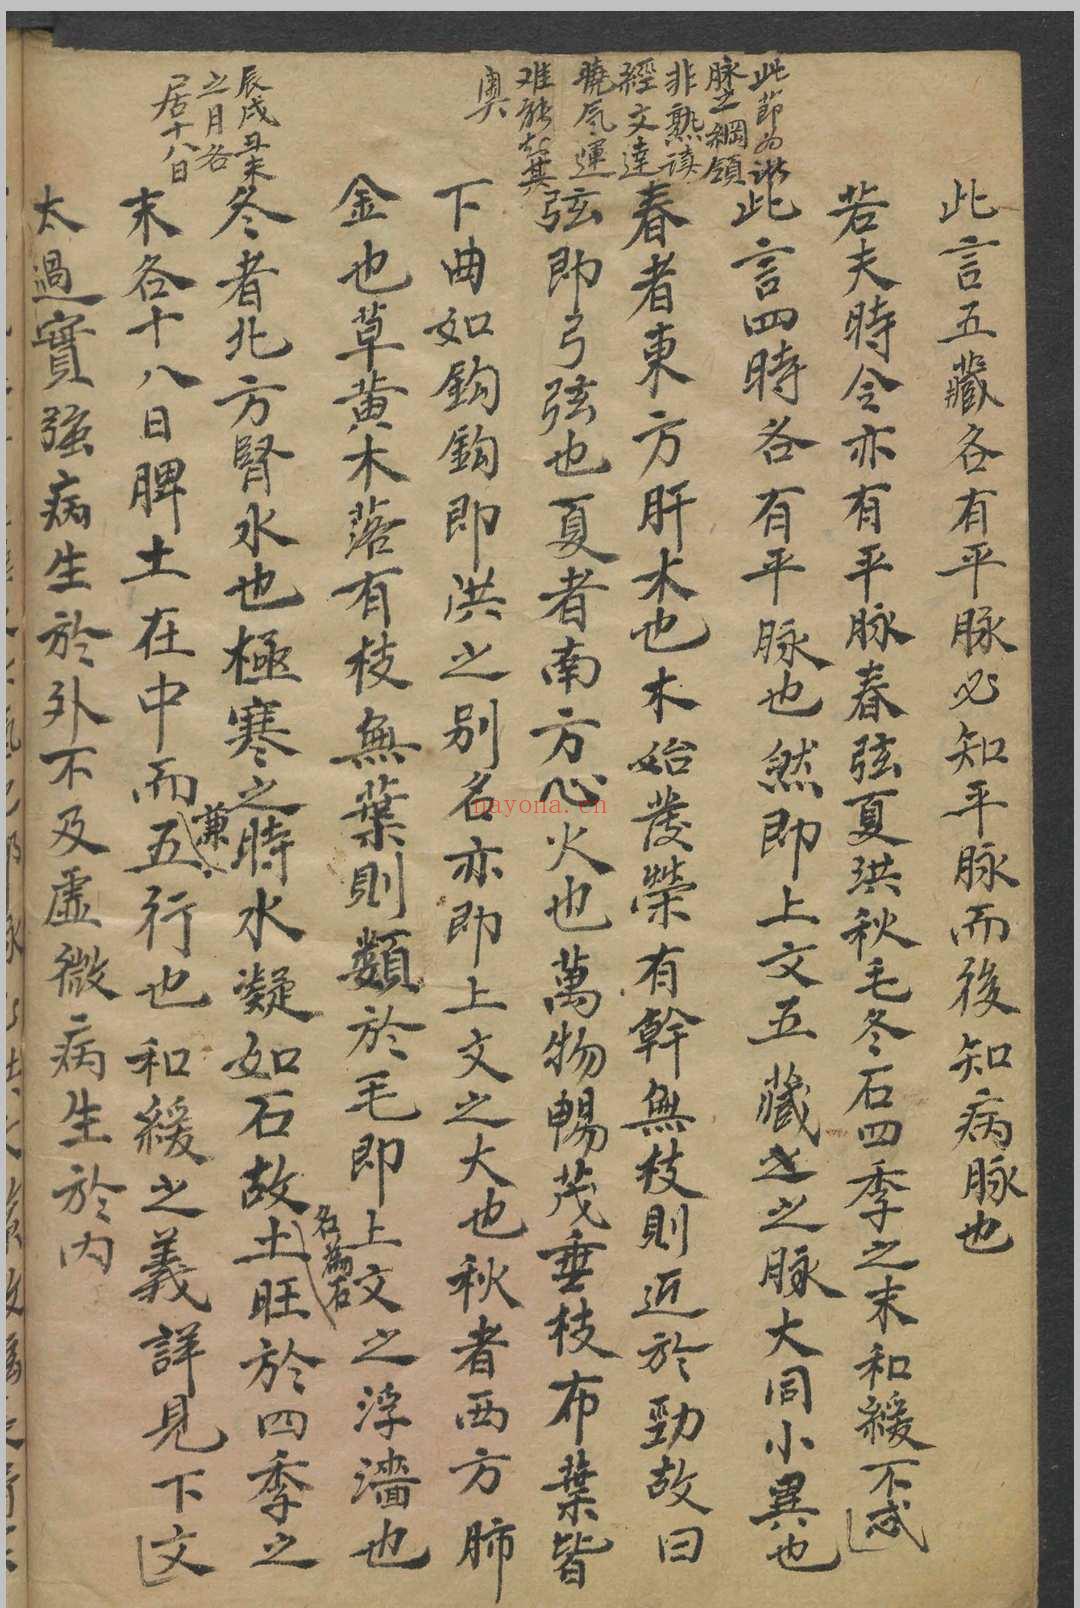 此節為診
脉之綱領
非熟讀
經文達
曉氣運
难能知其
奧
此言五藏各有平脉必知平脉而後知病脉也
若夫時令亦有平脉春弦夏洪秋毛冬石四季之末和緩不忒
此言四時各有平脉也然即上文五藏之脉大同小異也
春者東方肝木也木始發榮有幹無枝則近於勁故曰
弦即弓弦也夏者南方心火也萬物暢茂垂枝布葉皆
下曲如鈎鈎即洪之别名亦即上文之大也秋者西方肺
金也草黄木落有枝無葉則類於毛即上文之浮濇也
辰戌丑未
之月各
居十八日
冬者北方腎水也極寒之時水凝如石故名為石土旺於四季之
末各十八日脾土在中而兼五行也和緩之義詳見下文
太過實強病生於外不及虛微病生於内
nayona.cn